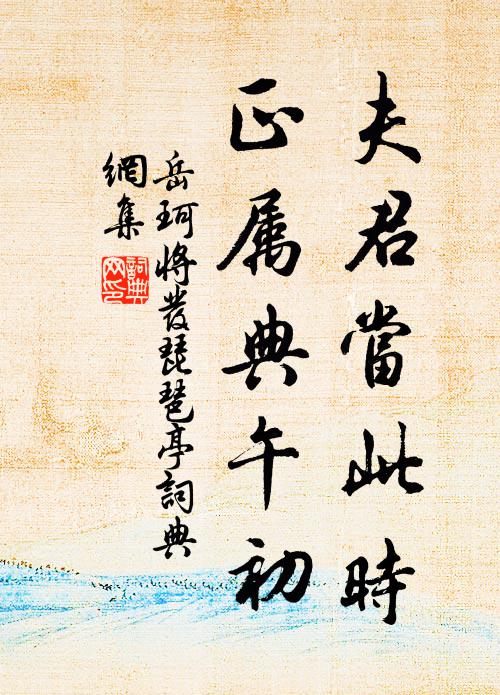 夫君當此時
正属典午初
岳珂將發琵琶亭詞典
網集
詞典網印